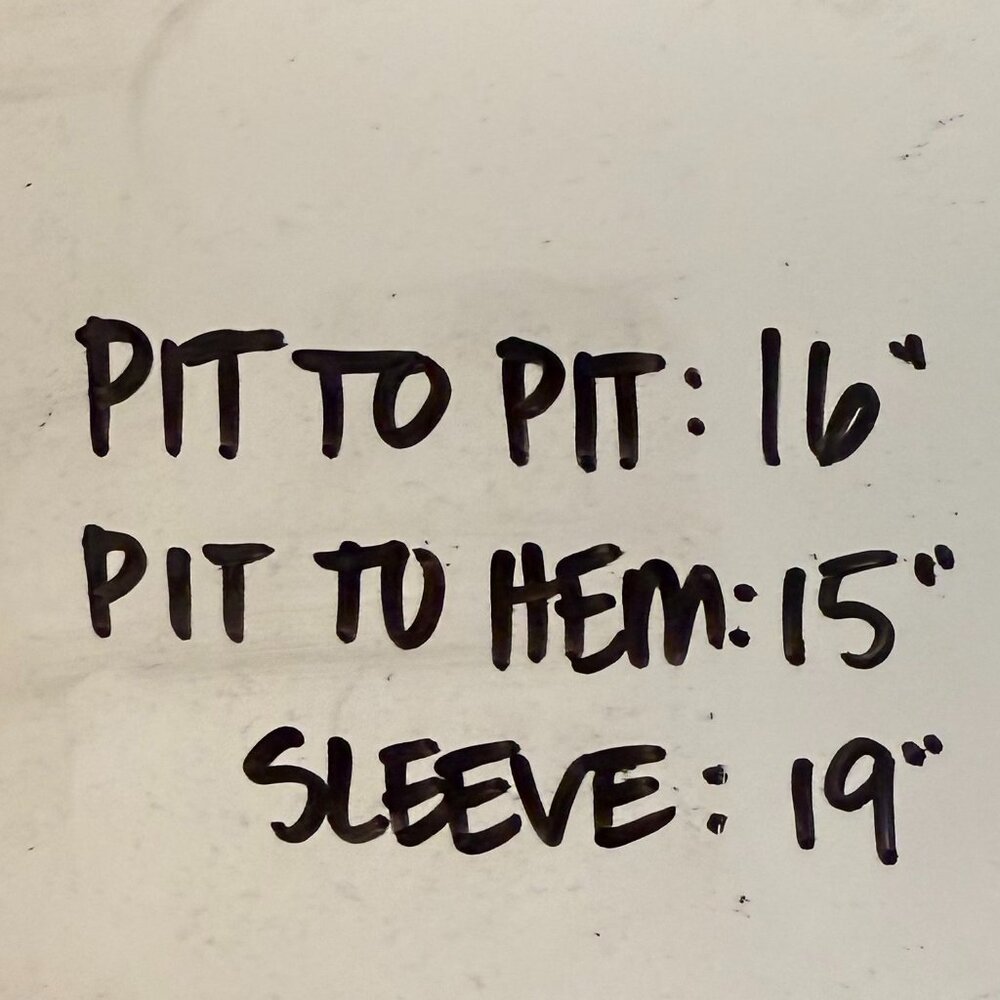 PIT TO PIT: 16"
PIT TO HEM: 15"
SLEEVE: 19"